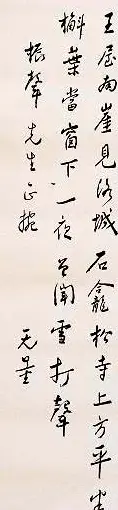 王屋南崖見洛城石龕松寺上方平半
槲葉當窗下一夜曾聞雪打聲
振聲先生正腕
无量